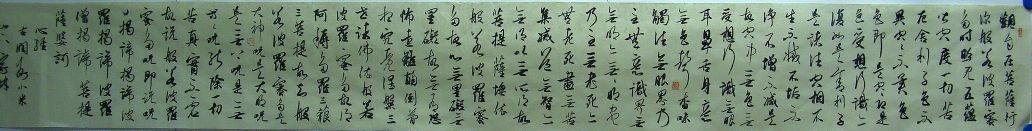 觀自在菩薩行
深般若波羅蜜
多時照見五蘊
皆空度一切苦
厄舍利子色不
異空空不異色
色即是空空即
是色受想行識
亦復如是舍利子
是諸法空相不
生不滅不垢不
淨不增不減是
故空中無色無
受想行識無眼
耳鼻舌身意
無色聲香味
觸法無眼界乃
至無意識界無
無明亦無無明盡
乃至無老死亦
無老死盡無苦
集滅道無智亦
無得以無所得故
菩提薩埵依
般若波羅蜜
多故心無罣礙無
罣礙故無有恐
怖遠離顛倒夢
想究竟涅槃三
世諸佛依般若
波羅蜜多故得
阿耨多羅三藐
三菩提故知般
若波羅蜜多是
大神咒是大明咒
是無上咒是無
等等咒能除一切
苦真實不虛
故說般若波羅
蜜多咒即說咒
曰揭諦揭諦波
羅揭諦波羅
僧揭諦菩提
薩婆訶
心經